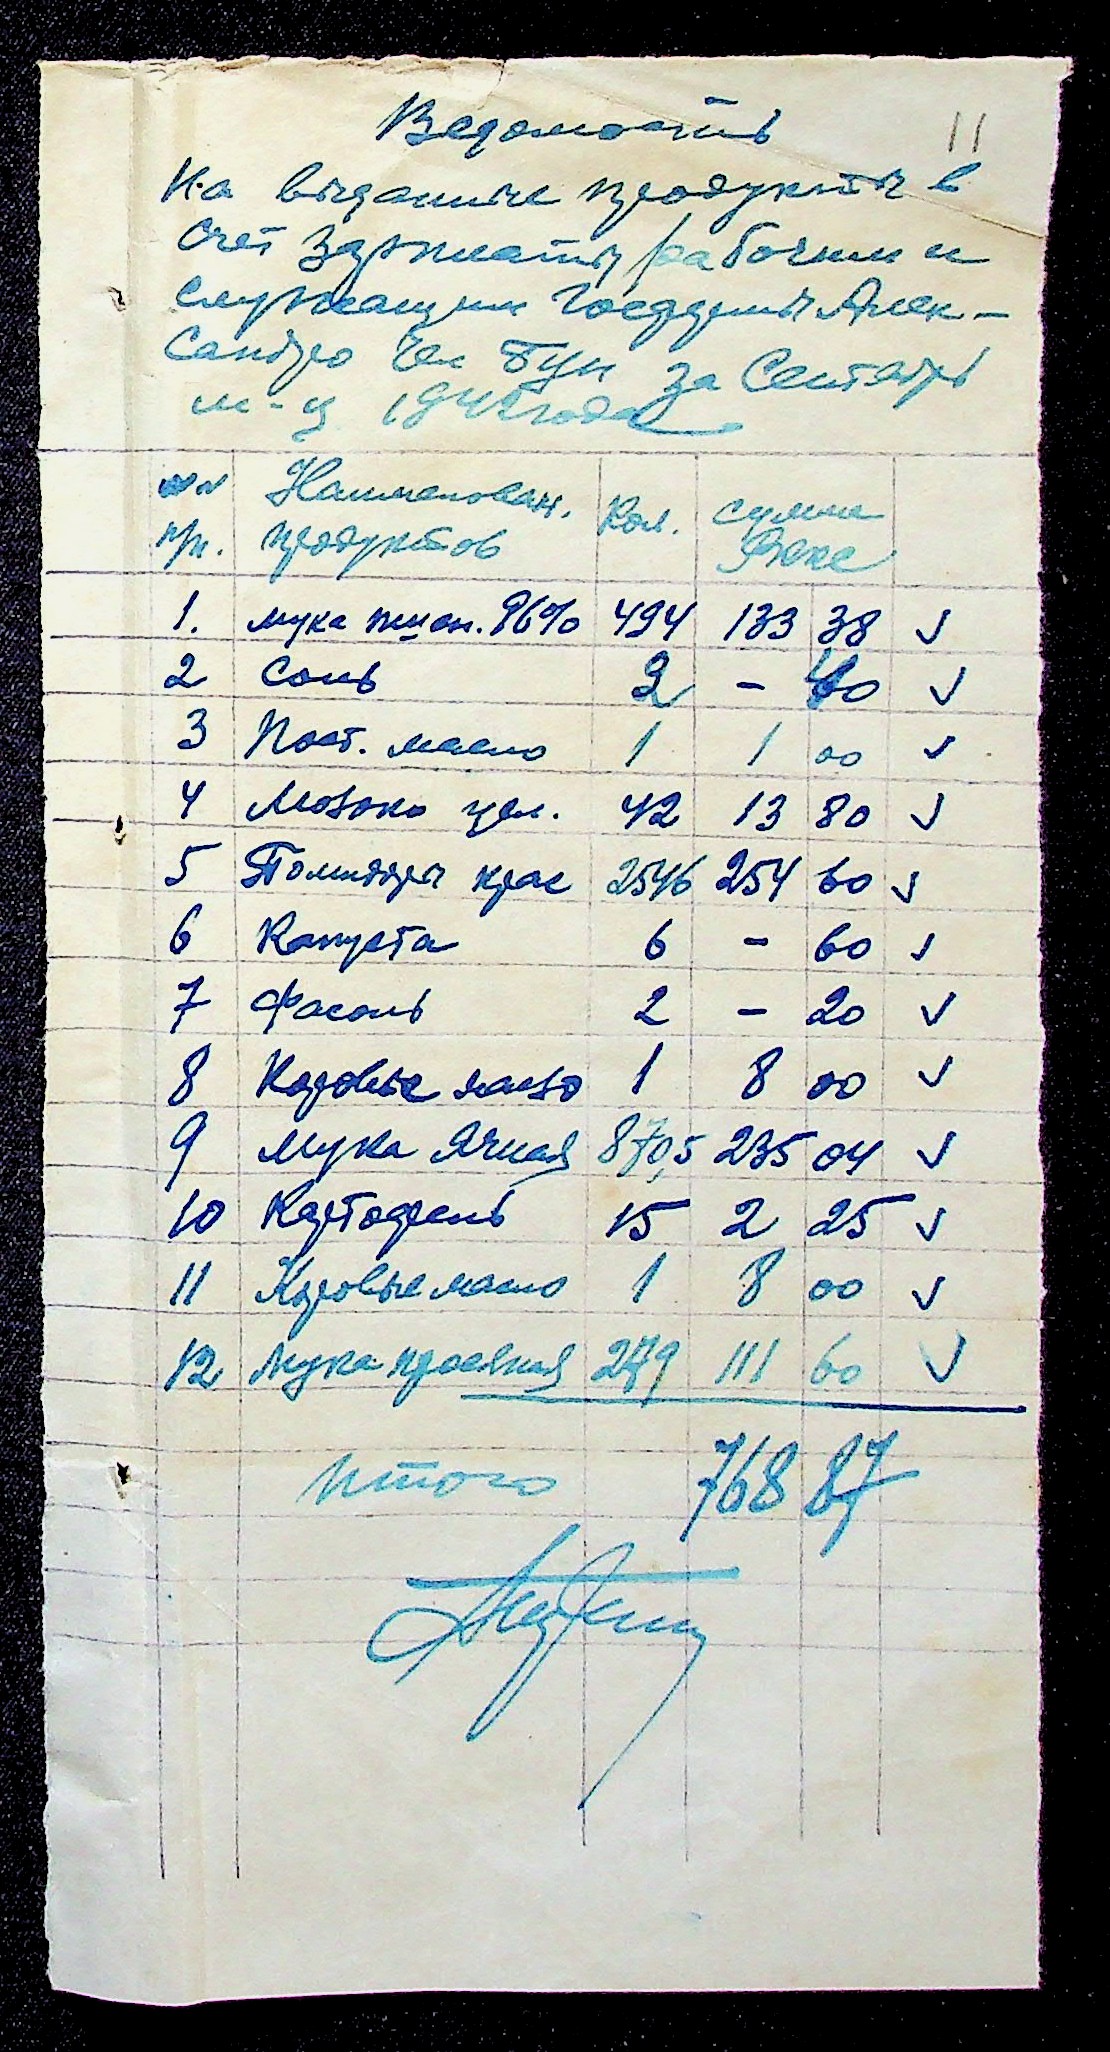 Ведомость
11
На выданные продукты в
счет зарплаты рабочим и
служащим Алек-
сандро за Сентябрь
м-ц 1942 года
№№ Наименован. Кол. сумма
п/п. продуктов
1. мука пшен. 96% 494 133 38 ✓
2 Соль 2 - 40 ✓
3 Пост. масло 1 1 00 ✓
4 Молоко цел. 42 13 80 ✓
5 Помидоры крас 2546 254 60 ✓
6 Капуста 6 - 60 ✓
7 Фасоль 2 - 20 ✓
8 Коровье масло 1 8 00 ✓
9 Мука Ячная 870,5 235 04 ✓
10 Картофель 15 2 25 ✓
11 Коровье масло 1 8 00 ✓
12 Мука просяная 279 111 60 ✓
итого 768 87